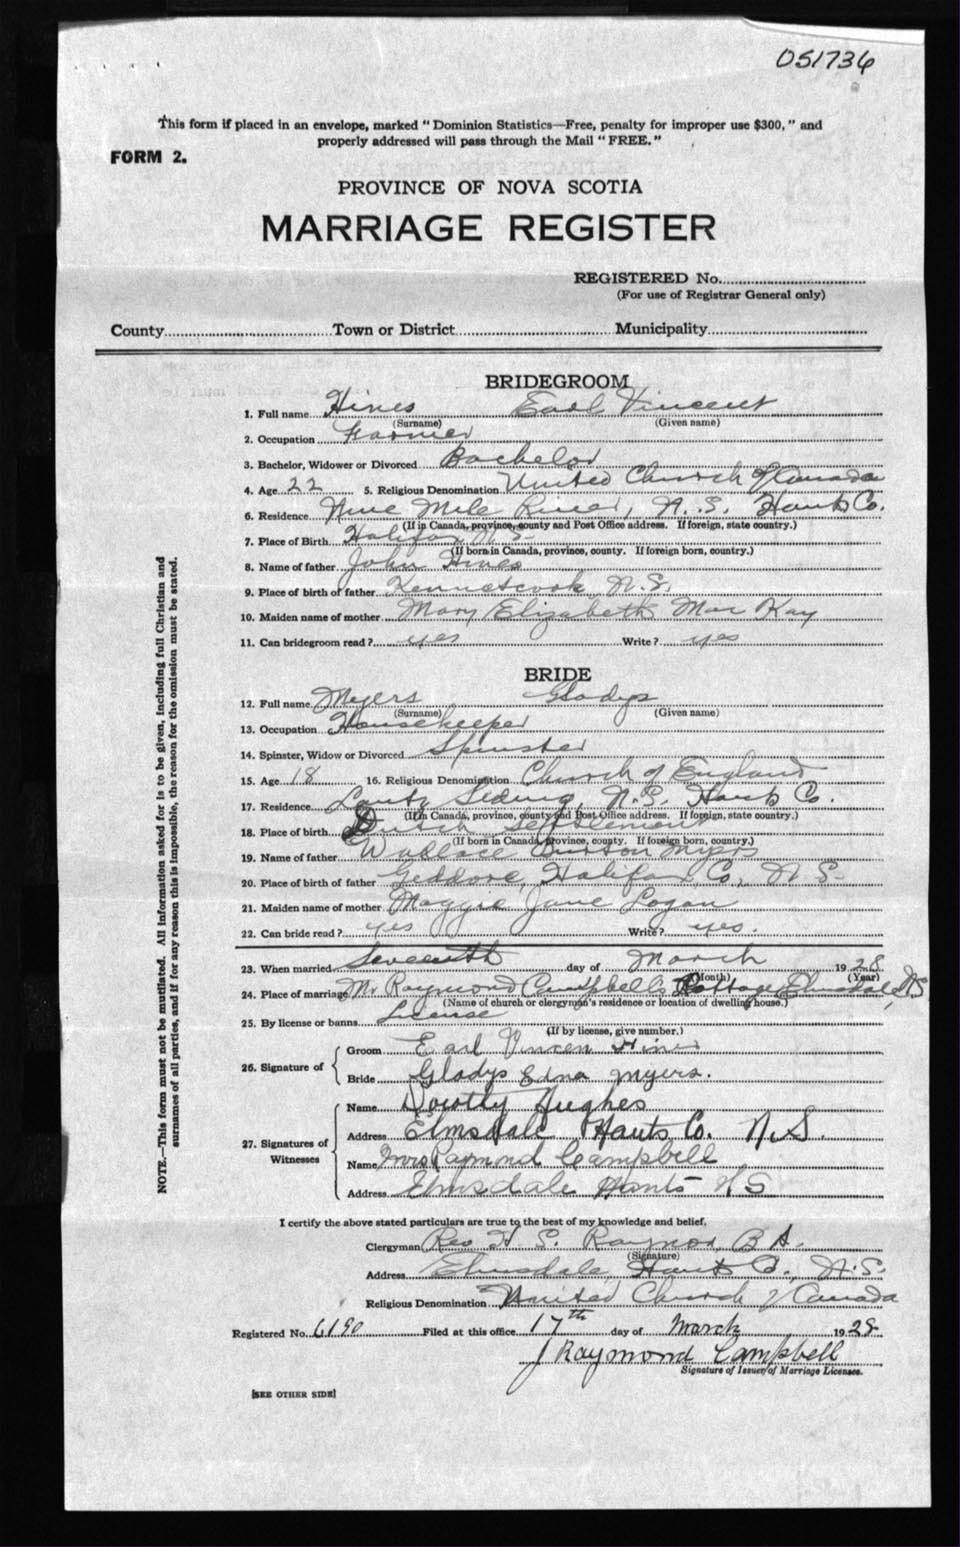 051736
This form if placed in an envelope, marked "Dominion Statistics—Free, penalty for improper use $300," and
properly addressed will pass through the Mail "FREE."
FORM 2.
PROVINCE OF NOVA SCOTIA
MARRIAGE REGISTER
REGISTERED No.
(For use of Registrar General only)
County Town or District Municipality
BRIDEGROOM
1. Full name Hines Earl Vincent
(Surname) (Given name)
2. Occupation Farmer
3. Bachelor, Widower or Divorced Bachelor
4. Age 22 5. Religious Denomination United Church of Canada
6. Residence Nine Mile River, N.S. Hants Co.
(If in Canada, province, county and Post Office address. If foreign, state country.)
7. Place of Birth Halifax N.S.
(If born in Canada, province, county. If foreign born, country.)
8. Name of father John Hines
9. Place of birth of father Kennetcook, N.S.
10. Maiden name of mother Mary Elizabeth Mac Kay
11. Can bridegroom read? yes Write? yes
BRIDE
12. Full name Myers Gladys
(Surname) (Given name)
13. Occupation Housekeeper
14. Spinster, Widow or Divorced Spinster
15. Age 18 16. Religious Denomination Church of England
17. Residence Lantz Siding, N.S. Hants Co.
(If in Canada, province, county and Post Office address. If foreign, state country.)
18. Place of birth Dutch Settlement
(If born in Canada, province, county. If foreign born, country.)
19. Name of father Wallace Burton Myers
20. Place of birth of father Geddore, Halifax Co., N S
21. Maiden name of mother Maggie Jane Logan
22. Can bride read? yes Write? yes.
23. When married Seventh day of March 1928
(Month) (Year)
24. Place of marriage Mr Raymond Campbell's Cottage Elmsdale, NS
(Name of church or clergyman's residence or location of dwelling house.)
25. By license or banns License
(If by license, give number.)
26. Signature of
Groom Earl Vincen Hines
Bride Gladys Edna Myers.
27. Signatures of Witnesses
Name Dorothy Hughes
Address Elmsdale Hants Co. N.S.
Name Mrs Raymond Campbell
Address Elmsdale Hants N S
I certify the above stated particulars are true to the best of my knowledge and belief.
Clergyman Rev H. S. Raynor, B A.
(Signature)
Address Elmsdale, Hants Co., N.S.
Religious Denomination United Church of Canada
Registered No. 6190 Filed at this office 17th day of March 1928
J Raymond Campbell
Signature of Issuer of Marriage Licenses.
[SEE OTHER SIDE]
NOTE.—This form must not be mutilated. All information asked for is to be given, including full Christian and
surnames of all parties, and if for any reason this is impossible, the reason for the omission must be stated.